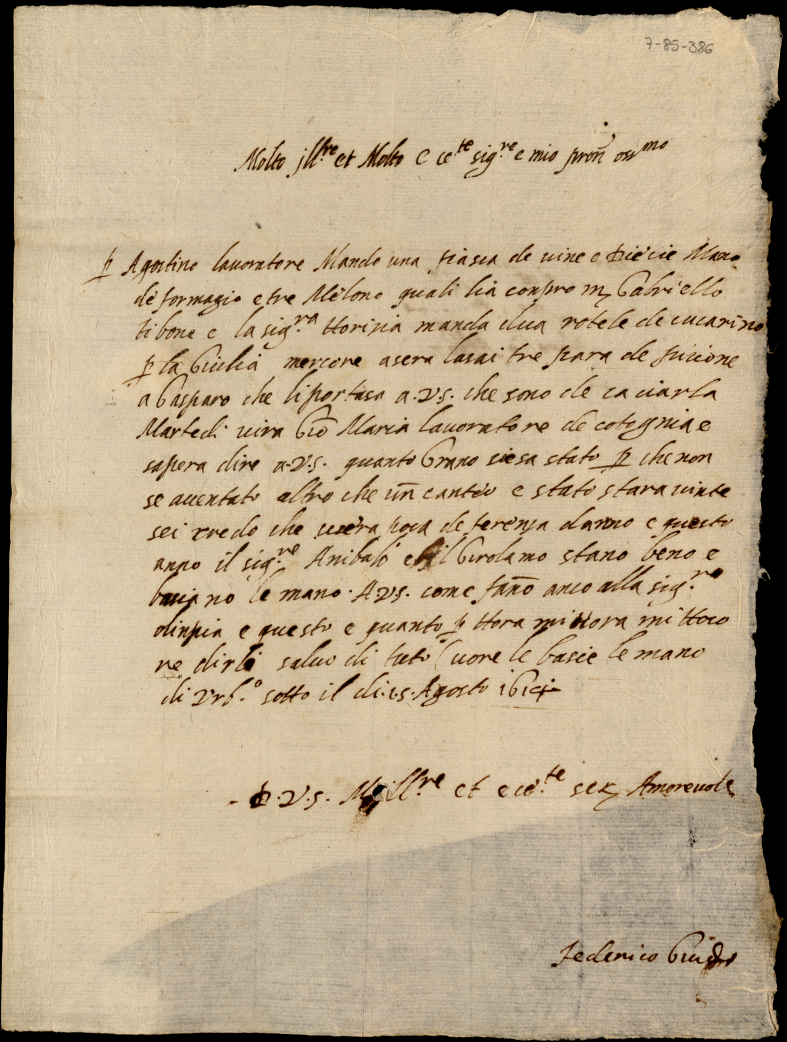 7-85-386
Molto jll.re et Molto e ce.te sig.re e mio pron oss.mo
p Agostino lauoratore Mando una fiasca de uine e Diecie Mano
de formagio e tre Melone quali lia conpro m Gabriello
tibone e la sig.ra manda dua rotele de cucarino
p la Giulia mercore asera lasai tre para de picione
a Gasparo che li portasa a.V.S. che sono de caciarla
Martedi uira Gio Maria lauoratore de cotognia e
sapera dire a.V.S. quanto Grano siesa stato p che non
se auentato altro che un canto e stato stara uinte
sei credo che sara poca deferensa danno e questo
anno il sig.re Anibale e il Girolamo stano bene e
baciano le mano. A V.S. come fano anco alla sig.ra
olinpia e questo e quanto p
re dirli saluo di tuto Cuore le bacie le mano
di Vrb.o sotto il di.15.Agosto
D.V.S. M ill.re et ece.te ser Amoreuole
Federico